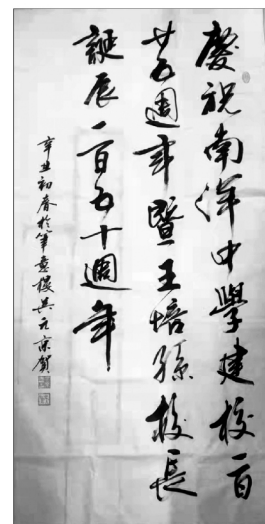 慶祝南洋中學建校一百
廿五週年暨王培孫校長
誕辰一百五十週年
辛丑初春於筆意樓吳元京賀